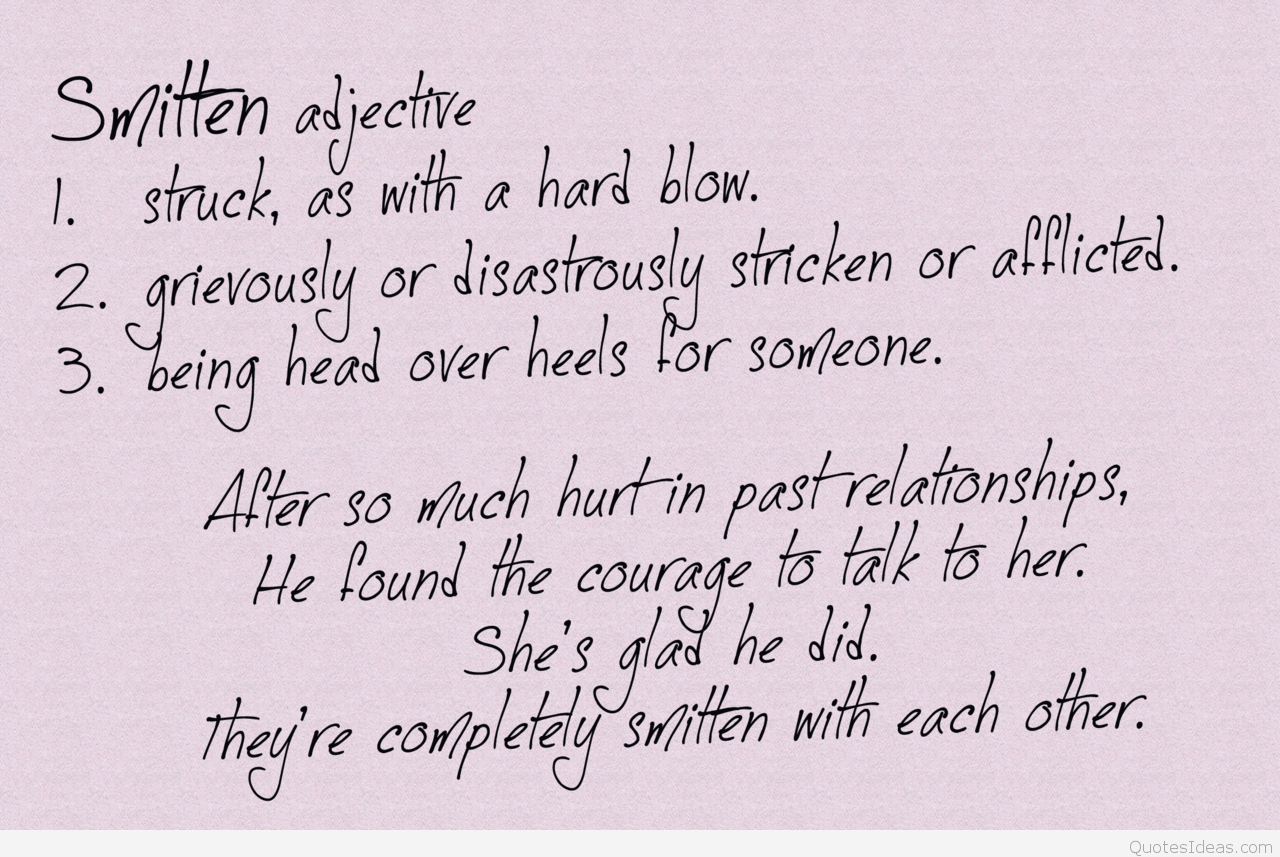 Smitten adjective
1. struck, as with a hard blow.
2. grievously or disastrously stricken or afflicted.
3. being head over heels for someone.
After so much hurt in past relationships,
He found the courage to talk to her.
She's glad he did.
They're completely smitten with each other.
QuotesIdeas.com